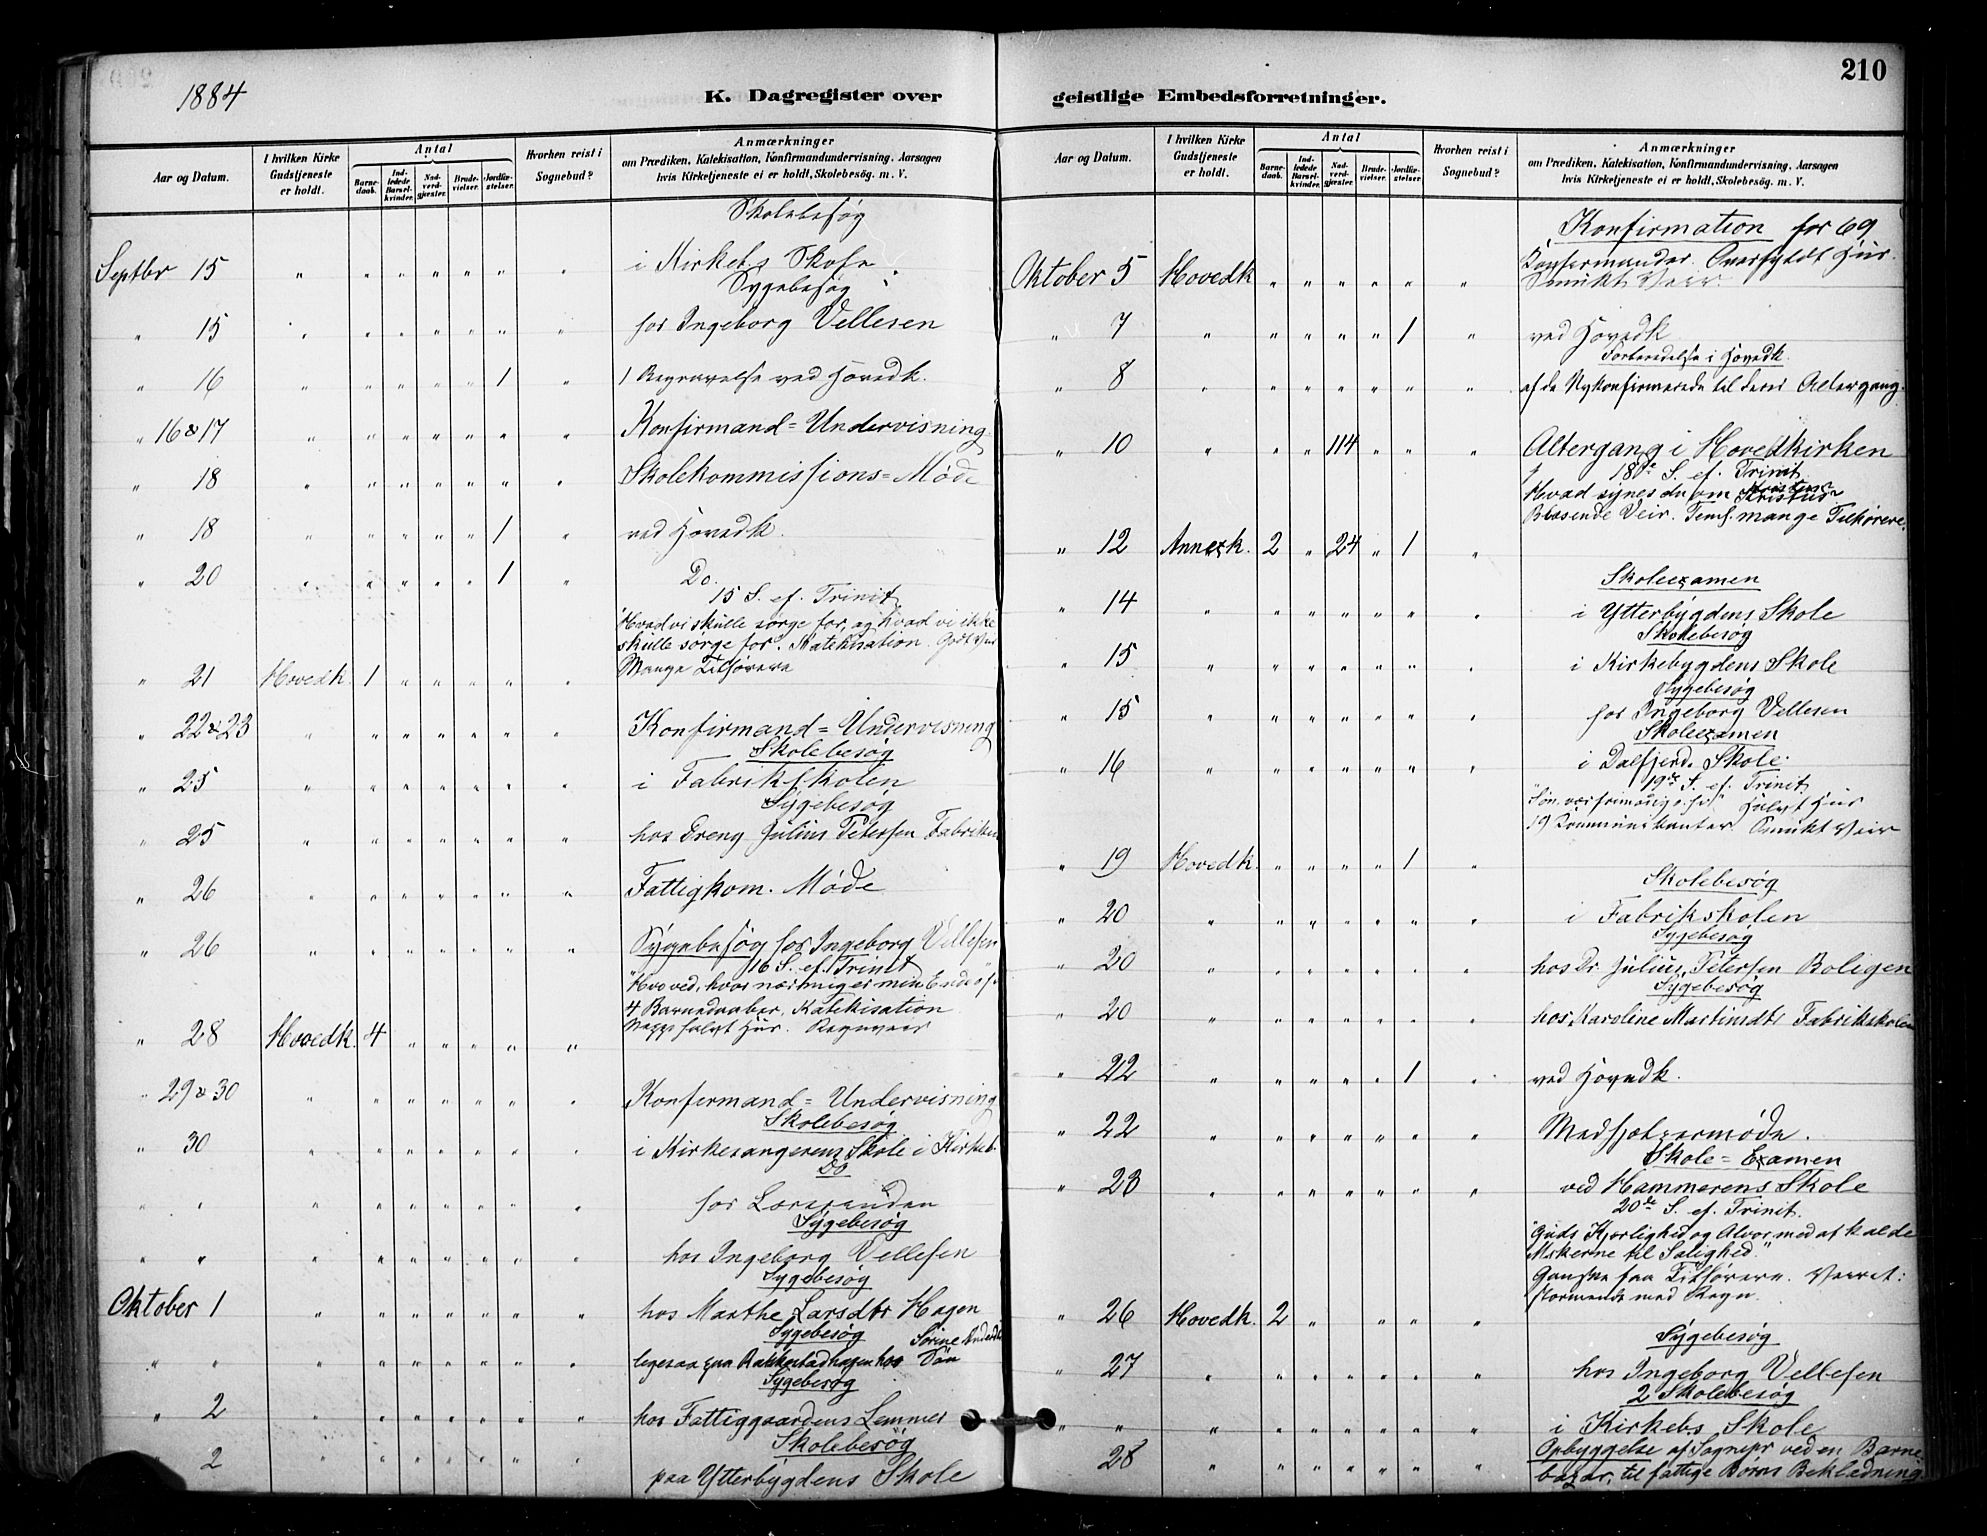 1884
K. Dagregister over
Aar og Datum.
I hvilken Kirke Gudstjeneste er holdt.
Antal
Barnedaab.
Indledede Barselkvinder.
Nadverdgjester.
Brudevielser.
Jordfæstelser.
Hvorhen reist i Sognebud?
Anmærkninger
om Prædiken, Katekisation, Konfirmandundervisning, Aarsagen
hvis Kirketjeneste ei er holdt, Skolebesög. m. V.
Skolebesøg
Septbr 15 " " " " " " " i Kirkeb.s Skole
Sygebesøg
" 15 " " " " " " " hos Ingeborg Vellesen
" 16 " " " " " 1 " 1 Begravelse ved Hovedk.
" 16 & 17 " " " " " " " Konfirmand=Undervisning
" 18 " " " " " " " Skolekommissions=Møde
" 18 " " " " " 1 " ved Hovedk.
" 20 " " " " " 1 " Do.
15 S. ef. Trinit
Hvad vi skulle sørge for, og hvad vi ikke
skulle sørge for. Katekisation. Godt Veir
Mange Tilhørere
" 21 Hovedk. 1 " " " " "
" 22 & 23 " " " " " " " Konfirmand=Undervisning
Skolebesøg
" 25 " " " " " " " i Fabrikskolen
Sygebesøg
" 25 " " " " " " " hos Dreng Julius Petersen Fabriken
" 26 " " " " " " " Fattigkom. Møde
" 26 " " " " " " " Sygebesøg hos Ingeborg Vellesen
16 S. ef. Trinit
"Hvo ved, hvor nær mig er min Ende"
4 Barnedaaber, Katekisation
Regnveir
" 28 Hovedk. 4 " " " " "
" 29 & 30 " " " " " " " Konfirmand=Undervisning
Skolebesøg
" 30 " " " " " " " i Kirkesangerens Skole i Kirkeb.
Do
" " " " " " " " " hos
Sygebesøg
" " " " " " " " " hos Ingeborg Vellesen
Sygebesøg
Oktober 1 " " " " " " " hos Marthe Larsdtr Hagen
Sygebesøg
" " " " " " " " " ligesaa paa Rakkestadhagen hos Sørine
Sygebesøg
" 2 " " " " " " " hos Fattiggaardens Lemmer
Skolebesøg
" 2 " " " " " " " paa Ytterbygdens Skole
210
geistlige Embedsforretninger.
Aar og Datum.
I hvilken Kirke Gudstjeneste er holdt.
Antal
Barnedaab.
Indledede Barselkvinder.
Nadverdgjester.
Brudevielser.
Jordfæstelser.
Hvorhen reist i Sognebud?
Anmærkninger
om Prædiken, Katekisation, Konfirmandundervisning, Aarsagen
hvis Kirketjeneste ei er holdt, Skolebesög. m. V.
Konfirmation for 69
Konfirmander. Overfyldt Hus.
Smukt Veir.
Oktober 5 Hovedk " " " " " "
" 7 " " " " " 1 " ved Hovedk
Forberedelse i Hovedk.
" 8 " " " " " " " af de Nykonfirmerede til deres Altergang.
" 10 " " " 114 " " " Altergang i Hovedkirken
18de S. ef. Trinit
Hvad synes du om Kristus
Blæsende Veir. Teml. mange Tilhørere.
" 12 Annexk. 2 " 24 " 1 "
Skoleexamen
" 14 " " " " " " " i Ytterbygdens Skole
Skolebesøg
" 15 " " " " " " " i Kirkebygdens Skole
Sygebesøg
" 15 " " " " " " " hos Ingeborg Vellesen
Skoleexamen
" 16 " " " " " " " i Dalfjerd. Skole.
19de S. ef. Trinit
"Søn, vær frimodig o.s.v." Halvt Hus
19 Kommunikanter. Smukt Veir
" 19 Hovedk. " " " " 1 "
Skolebesøg
" 20 " " " " " " " i Fabrikskolen
Sygebesøg
" 20 " " " " " " " hos Dr. Julius Petersen Boligen
Sygebesøg
" 20 " " " " " " " hos Karoline Martinsdtr Fabrikskolen
" 22 " " " " " 1 " ved Hovedk.
" 22 " " " " " " " Medhjælpermøde.
Skole=Examen
" 23 " " " " " " " ved Hammerens Skole
20de S. ef. Trinit.
"Guds Kjærlighed og Alvor med at kalde
Mskerne til Salighed."
Ganske faa Tilhørere. Veiret:
stormende med Regn.
" 26 Hovedk. 2 " " " "
Sygebesøg
" 27 " " " " " " " hos Ingeborg Vellesen
2 Skolebesøg
" " " " " " " " " i Kirkebs Skole
28 " " " " " " " Opbyggelse af Sognepr ved en Barne
bazar, til fattige Børns Beklædning